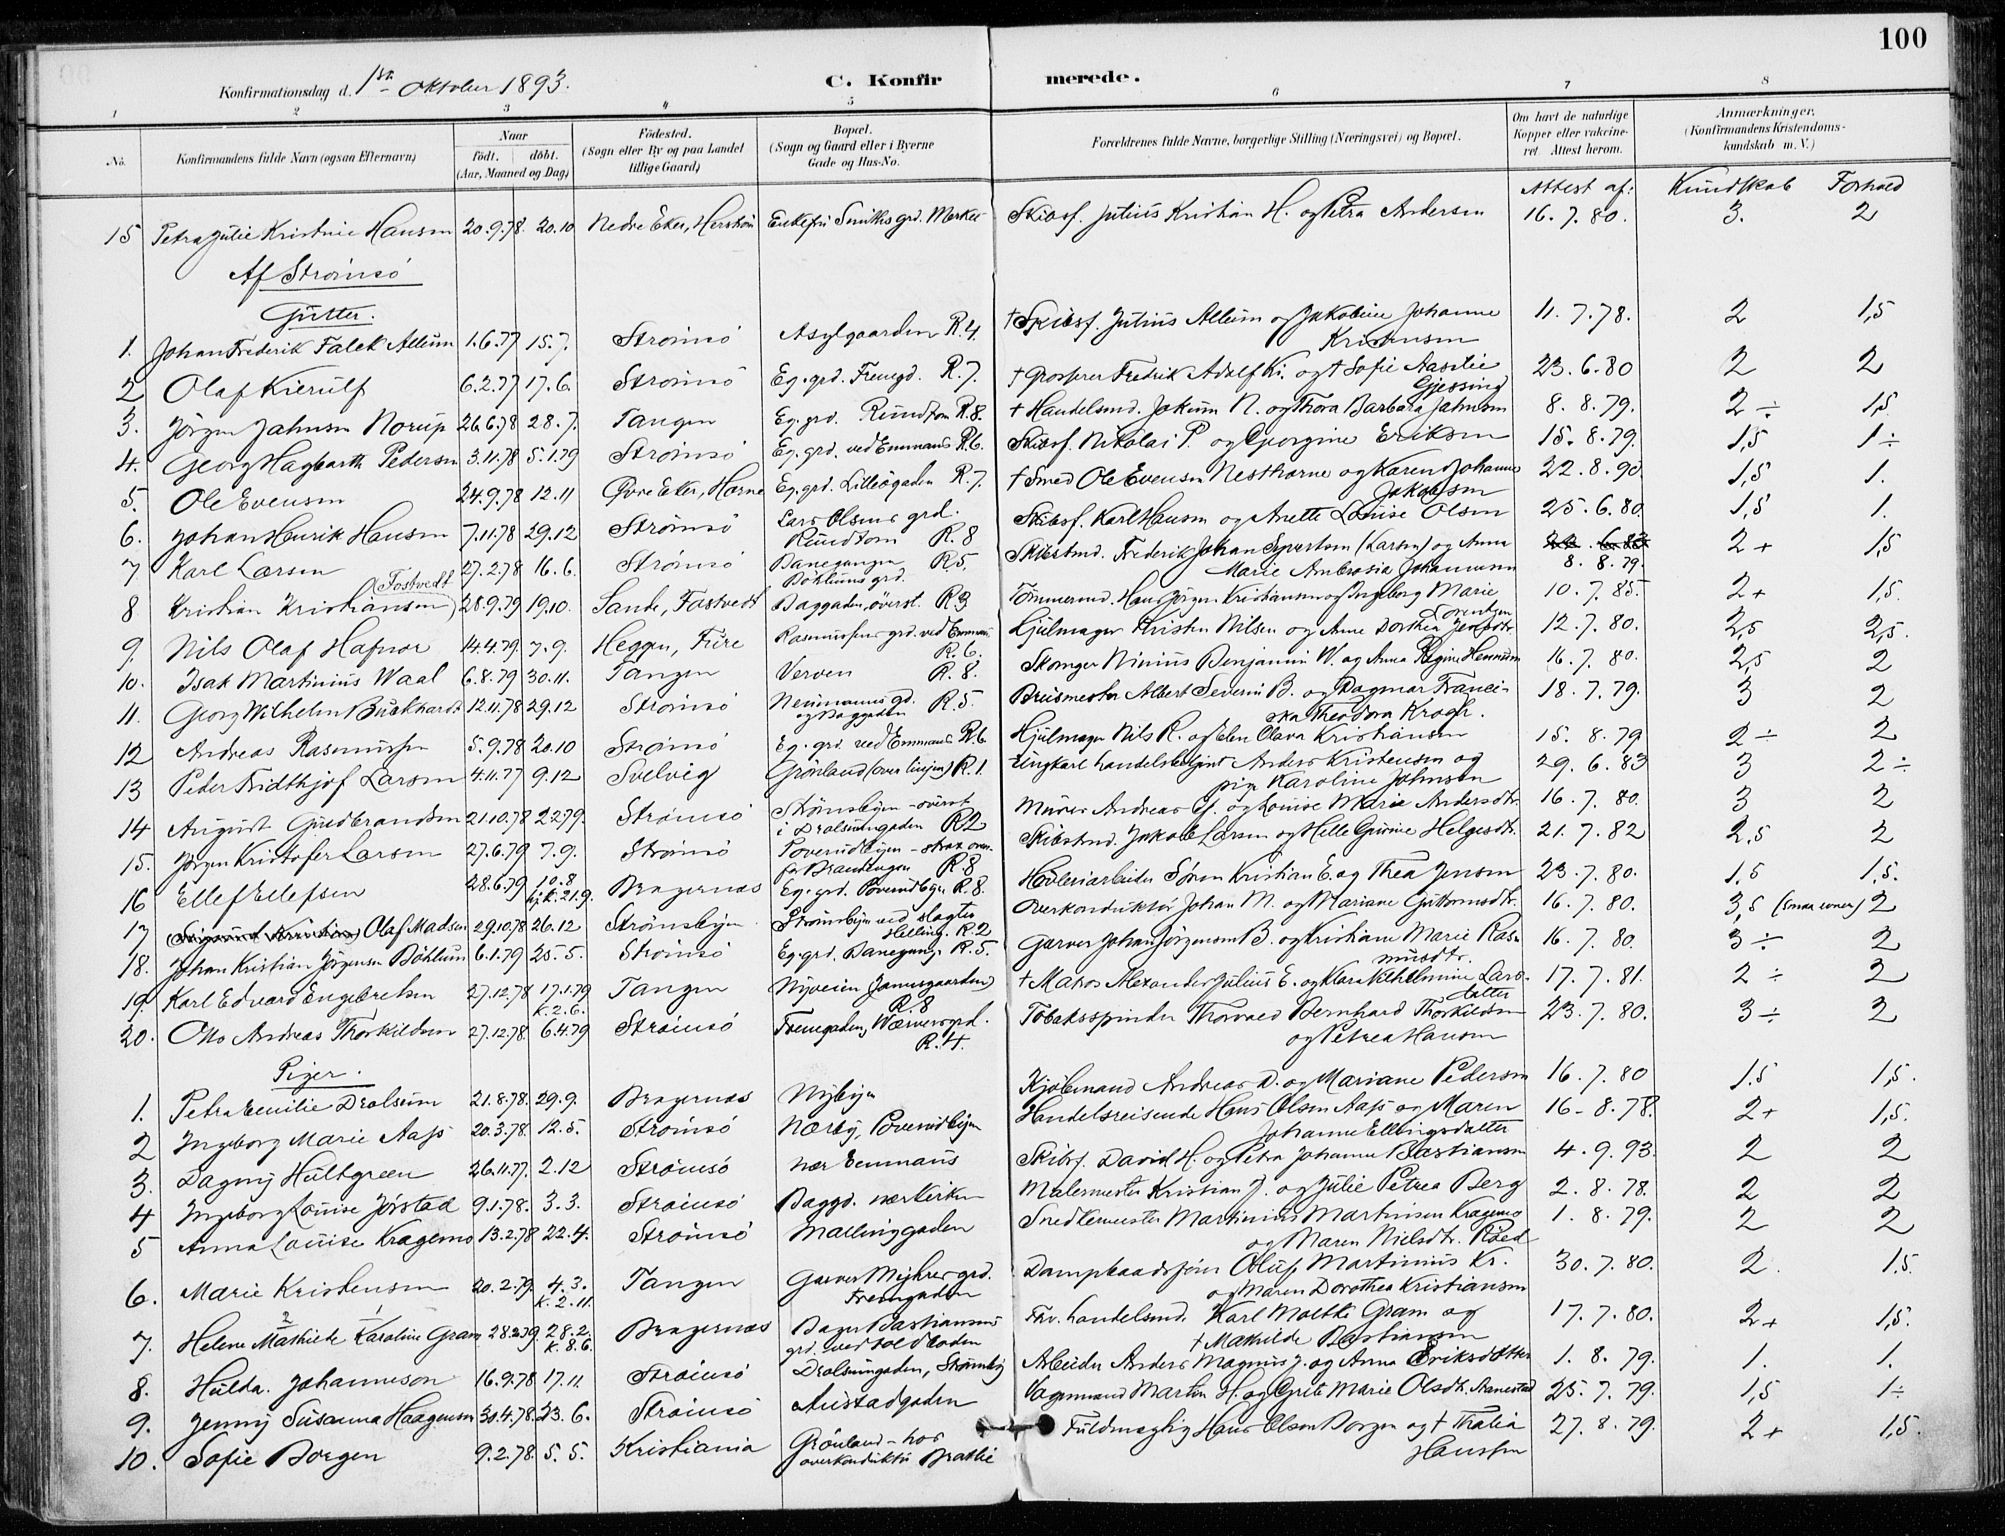 100
Konfirmationsdag d. 1ste Oktober 1893.
C. Konfirmerede.
1 2 3 4 5 6 7 8
No. Konfirmandens fulde Navn (ogsaa Efternavn) Naar født. døbt. (Aar, Maaned og Dag) Fødested. (Sogn eller By og paa Landet tillige Gaard) Bopæl. (Sogn og Gaard eller i Byerne Gade og Hus-No. Forældrenes fulde Navne, borgerlige Stilling (Næringsvei) og Bopæl. Om havt de naturlige Kopper eller vakcineret. Attest herom. Anmærkninger. (Konfirmandens Kristendomskundskab m. V.)
Attest af: Kundskab Forhold
15 Petra Julie Kristine Hansen 20.9.78 20.10 Nedre Eker, Enkefru Smiths grd. Skibsf. Julius Kristian H. og Petra Andersen 16.7.80. 3. 2
Af Strømsö
Gutter.
1. Johan Frederik Falck Allum 1.6.77 15.7. Strömsö Asylgaarden R.4. † Skibsf. Julius Allum og Jakobine Johanne Kristensen 11.7.78. 2 1,5
2 Olaf Kierulf 6.2.77 17.6. Strömsö Eg. grd. Fremgd. R.7. † Grosserer Fredrik Adolf Ki. og † Sofie Aasilie Gjessing 23.6.80 2 2
3. Jörgen Jahnsen Norup 26.6.78 28.7. Tangen Eg. grd. Rundtom R.8. † Handelsmd. Jokum N. og Thora Barbara Jahnsen 8.8.79. 2÷ 1,5
4. Georg Hagbarth Pedersen 3.11.78 5.1.79 Strömsö Eg. grd. ved Emmaus R.6. Skibsf. Nikolai P. og Georgine Eriksen 15.8.79. 1,5 1÷
5. Ole Evensen 24.9.78 12.11 Øvre Eker, Horne Eg. grd. Lillegaden R.7. † Smed Ole Evensen og Karen Johanne Jakobsen 22.8.90. 1,5 1.
6. Johan Henrik Hansen 7.11.78 29.12 Strömsö Lars Olsens grd. Rundtom R.8 Skibsf. Karl Hansen og Anette Louise Olsen 25.6.80. 1,5 1.
7 Karl Larsen 27.2.78 16.6. Strömsö Banegangen Böhlums grd. R.5. Skibstmd. Frederik Johan Syvertsen (Larsen) og Anna Marie Ambrosia Johannesen 8.8.79. 2+ 1,5
8 Kristian Kristiansen (Fostvedt) 28.9.79 19.10. Sande, Fostvedt Baggaden, överst. R.3 Tömmermd. Hans Jörgen Kristiansen og Ingeborg Marie Sorentzen 10.7.85. 2+ 1,5.
9. Nils Olaf Hafnor 14.4.79 7.9. Heggen, Fure Rasmussens grd. ved Emmaus R.6. Hjulmager Kristen Nilsen og Anne Dorthea 12.7.80. 2,5 2,5.
10. Isak Martinius Waal 6.8.79 30.11. Tangen Verven R.8. Skomger Ninius Benjamin W. og Anna Regine Hennum 16.7.80. 2,5 2
11. Georg Wilhelm Buckhardt 12.11.78 29.12 Strömsö Neumanns gd. og Baggaden R.5. Albert Severin B. og Dagmar Franciska Theodora Krogh. 18.7.79. 3 2
12 Andreas Rasmussen 5.9.78 20.10 Strömsö Eg. grd. ved Emmaus R.6 Hjulmager Nils R. og Elen Olava Kristiansen 15.8.79 2÷ 2
13 Peder Fridthjof Larsen 4.11.77 9.12 Svelvig Grönland (over linjen) R.1. Ungkarl handelsbetjent Anders Kristensen og pige Karoline Johnsen 29.6.83 3 2÷
14 August Gudbrandsen 21.10.78 2.2.79. Strömsö Strömsbyen - överst i Drolsumgaden R2 Murer Andreas G. og Louise Marie Andersdtr. 16.7.80. 3 2
15. Jörgen Kristofer Larsen 27.6.79 7.9. Strömsö Poverudbyen - strax ovenfor Brandvagen R.8 Skibstmd. Jakob Larsen og Helle Gurine Helgesdtr. 21.7.82 2,5 2
16 Ellef Ellefsen 28.6.79 10.8 kjk. 21.9. Bragernæs Eg. grd. Poverudbyen R.8. Høvleriarbeider Sören Kristian E. og Thea Jensen 23.7.80. 1,5 1,5.
17 Olaf Madsen 29.10.78 26.12 Strömsbyen Strömsbyen ved slagter Helling. R.2 Overkonduktör Johan M. og Mariane Guttormsdtr. 16.7.80. 3,5 (smaa evner) 2
18. Johan Kristian Jörgensen Böhlum 6.1.79 25.5. Strömsö Eg. grd. Banegangen R.5. Garver Johan Jörgensen B. og Kristiane Marie Rasmusdtr. 16.7.80. 3÷ 2
19. Karl Edvard Engebretsen 27.12.78 17.1.79 k. 2.6. Tangen Nyveien (Jansgaarden) R.8 † Matros Alexander Julius E. og Klara Vilhelmine Larsdatter 17.7.81. 2÷ 2
20. Otto Andreas Thorkildsen 27.12.78. 6.4.79 Strömsö Fremgaden, Wærvers grd. R.4. Tobaksspinder Thorvald Bernhard Thorkildsen og Petrea Hansen 23.7.80. 3÷ 2
Piger.
1. Petra Emilie Drolsum 21.8.78. 29.9. Bragernæs Nybyen Kjöbmand Andreas D. og Mariane Pedersen 16.7.80 1.5 1,5.
2 Ingeborg Marie Aass 20.3.78. 12.5. Strömsö Nærby, Poverudbyen Handelsreisende Hans Olsen Aass og Maren Johanne Ellingsdatter 16.8.78. 2+ 1,5.
3. Dagny Hultgreen 26.11.77. 2.12 Strömsö nær Emmaus Skibsf. David H. og Petra Johanne Bastiansen 4.9.93. 2 2
4 Ingeborg Louise Jörstad 9.1.78. 3.3. Strömsö Baggd. nær kirken Malermester Kristian J. og Julie Petrea Berg 2.8.78. 2 2
5 Anna Louise Kragemo 13.2.78 22.4. Strömsö Mallinggaden Snedkermester Martinius Martinsen Kragemo og Maren Nielsdtr. Röed 1.8.79. 2 2
6. Marie Kristensen 20.2.79. 4.3. k. 2.11. Tangen Garver Myhres grd. Fremgaden Oluf Martinius Kr. og Maren Dorothea Kristiansen 30.7.80. 2. 1.5.
7. Helene Mathilde Karoline Gram 2 1 28.2.79. 28.2. k. 8.6. Bragernæs Bager Bastiansens grd. ved toldboden Fhv. handelsmd. Karl Moltke Gram og † Mathilde Bastiansen 17.7.80. 2+ 1,5.
8. Hulda Johanneson 16.9.78 17.11. Strömsö Drolsumgaden, Strömsby Arbeider Anders Magnus J. og Anna Eriksdatter 1.8.79. 1. 1.
9. Jenny Susanna Haagensen 30.4.78. 23.6. Strömsö Austadgaden Vognmand Martin H. og Grete Marie Olsdtr. 25.7.79. 1,5 1÷
10. Sofie Borgen 9.2.78. 5.5. Kristiania Grönland - hos overkonduktör Brathe Fuldmægtig Hans Olsen Borgen og † Thalia Hanssen 27.8.79. 2+ 1,5.